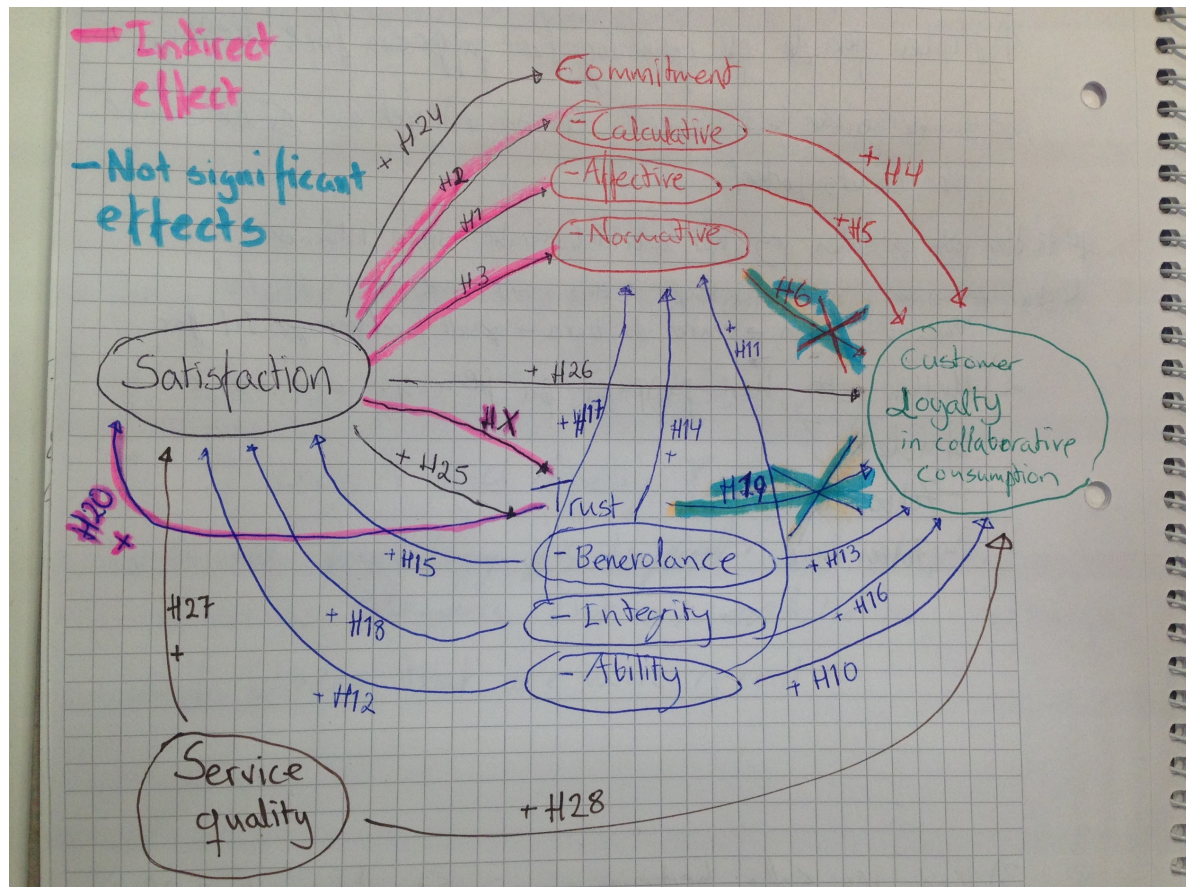 - Indirect
effect
- Not significant
effects
Commitment
- Calculative
- Affective
- Normative
+ H24
H2
H1
H3
+ H4
+ H5
H6
+ H26
+
H11
+ H17
H14
+
Satisfaction
Customer
Loyalty
in collaborative
consumption
HX
+ H25
H19
Trust
- Benevolance
- Integrity
- Ability
H20
+ H15
+ H18
+ H12
+ H13
+ H16
+ H10
H27
+
Service
quality
+ H28